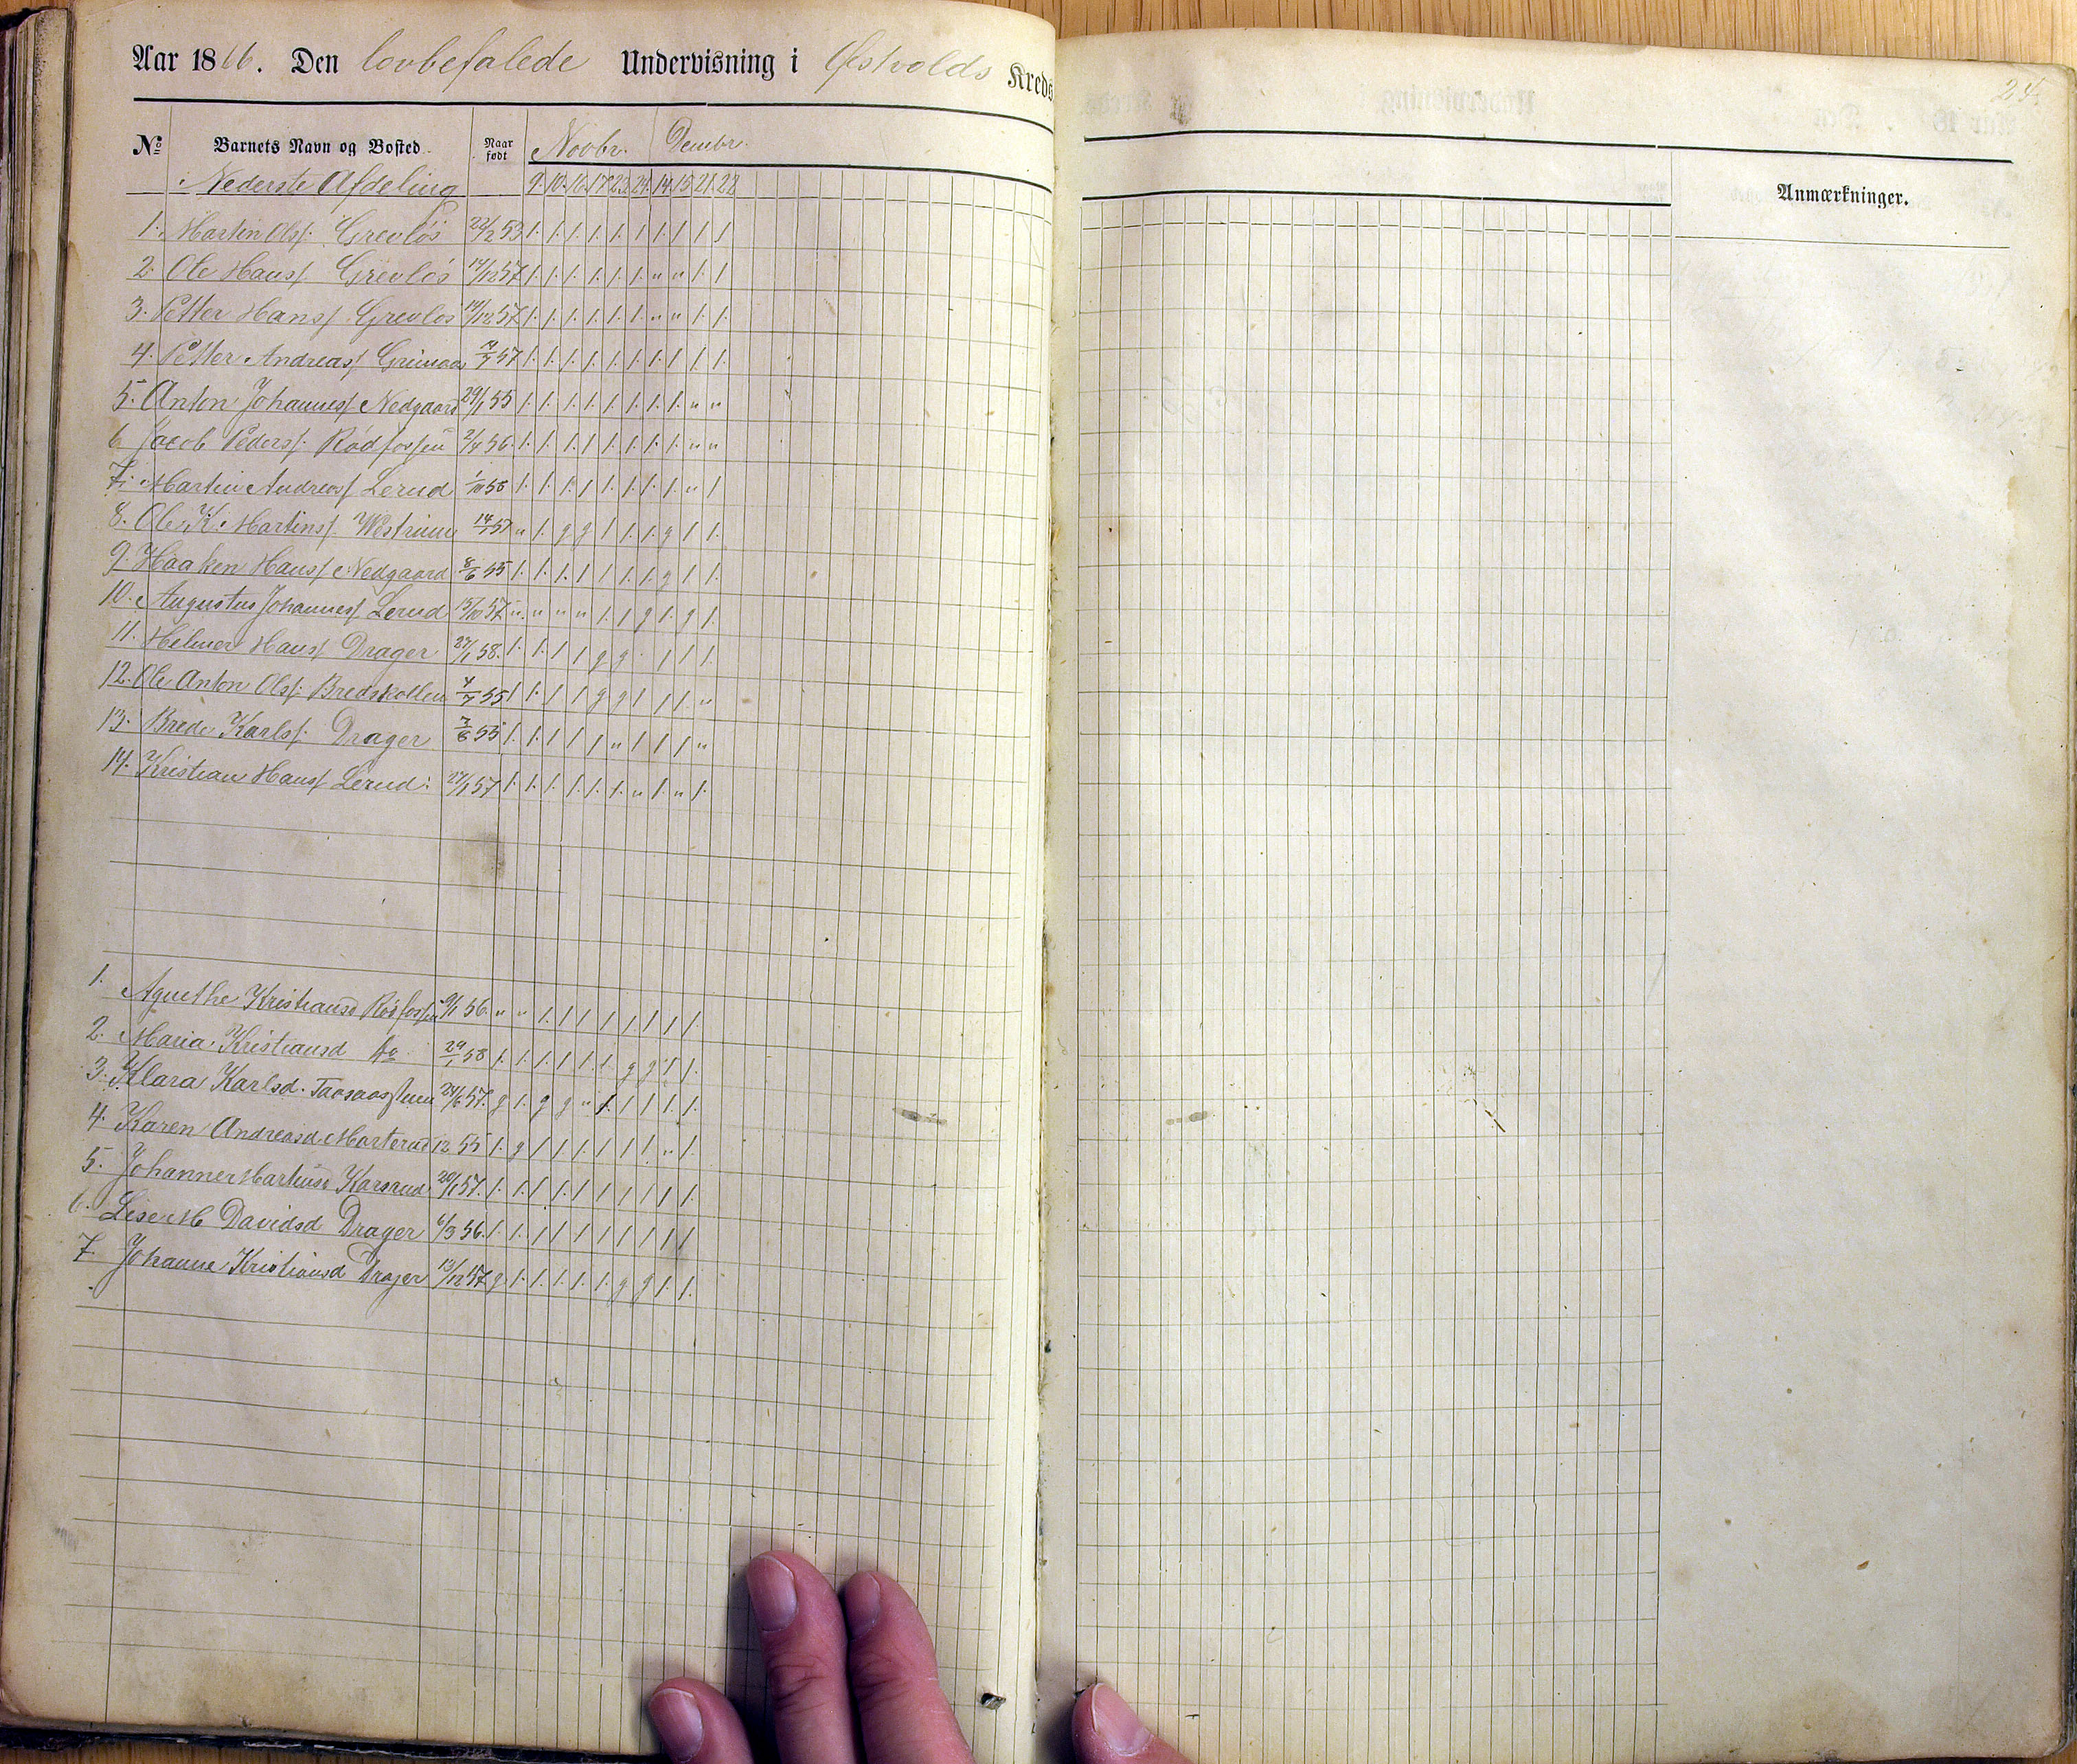 Aar 1866. Den lovbefalede Undervisning i Østvolds Kreds
24.
No Barnets Navn og Bosted. Naar født Novbr. Dembr.
Anmærkninger.
Nederste Afdeling 9. 10. 16. 17. 23. 24. 14. 15. 21. 22
1. Martin Olss. Grevlös 22/2 53 1. 1. 1. 1. 1. 1 1. 1 1 1
2. Ole Hanss. Grevlös 14/12 57 1. 1. 1. 1. 1. 1. " " 1. 1
3. Petter Hanss. Grevlös 14/12 57 1. 1. 1. 1. 1. 1. " " 1. 1.
4. Petter Andreass. 57 1. 1. 1. 1. 1. 1. 1. 1 1. 1.
5. Anton Johanness. Nedgaard 29/1 55 1. 1. 1. 1. 1. 1. 1. 1. " "
6 Jacob Peders. Rödfossen 2/8 56. 1. 1. 1. 1 1. 1. 1. 1. " "
7. Martin Andreass. Lerud 1. 1. 1. 1 1. 1. 1. 1. " 1
8. Ole K. Martins. 57 " 1. g g 1 1. 1. g 1 1.
9. Haaken Hanss. Nedgaard 8/6 55 1. 1. 1. 1 1 1. 1. g 1 1.
10. Augustus Johanness. Lerud 15/10 57 " " " " 1. 1 g 1. g 1.
11. Helmer Hanss. Drager 27/1 58. 1. 1. 1 1 g g 1 1 1.
12. Ole Anton Olss. Bredskollen 4/7 55 1 1. 1 1 g g 1 1 1. "
13. Brede Karlss. Drager 3/6 55 1. 1. 1 1 1 " 1 1 1 "
14. Kristian Hanss. Lerud. 27/1 57 1. 1. 1. 1. 1. 1. " 1. " 1.
1. Agnethe Kristiansd Rödfossen 56. " " 1. 1 1 1 1 1 1 1.
2. Maria Kristiansd do. 29/1 58 1. 1. 1. 1. 1 1. g g 1 1.
3. Klara Karlsd. 24/6 57. g 1. g g " 1. 1 1 1. 1.
4. Karen Andreasd. Morterud 12 55 1. g 1 1 1. 1 1 1. " 1.
5. Johanne Martinsd Karsrud. 20/1 57. 1. 1. 1 1. 1 1 1 1 1 1.
6. Lise M Davidsd Drager 6/3 56. 1. 1. 1 1 1 1 1 1 1 1
7. Johanne Kristiansd Drager 13/12 57 g 1. 1. 1. 1. 1. g g 1. 1.